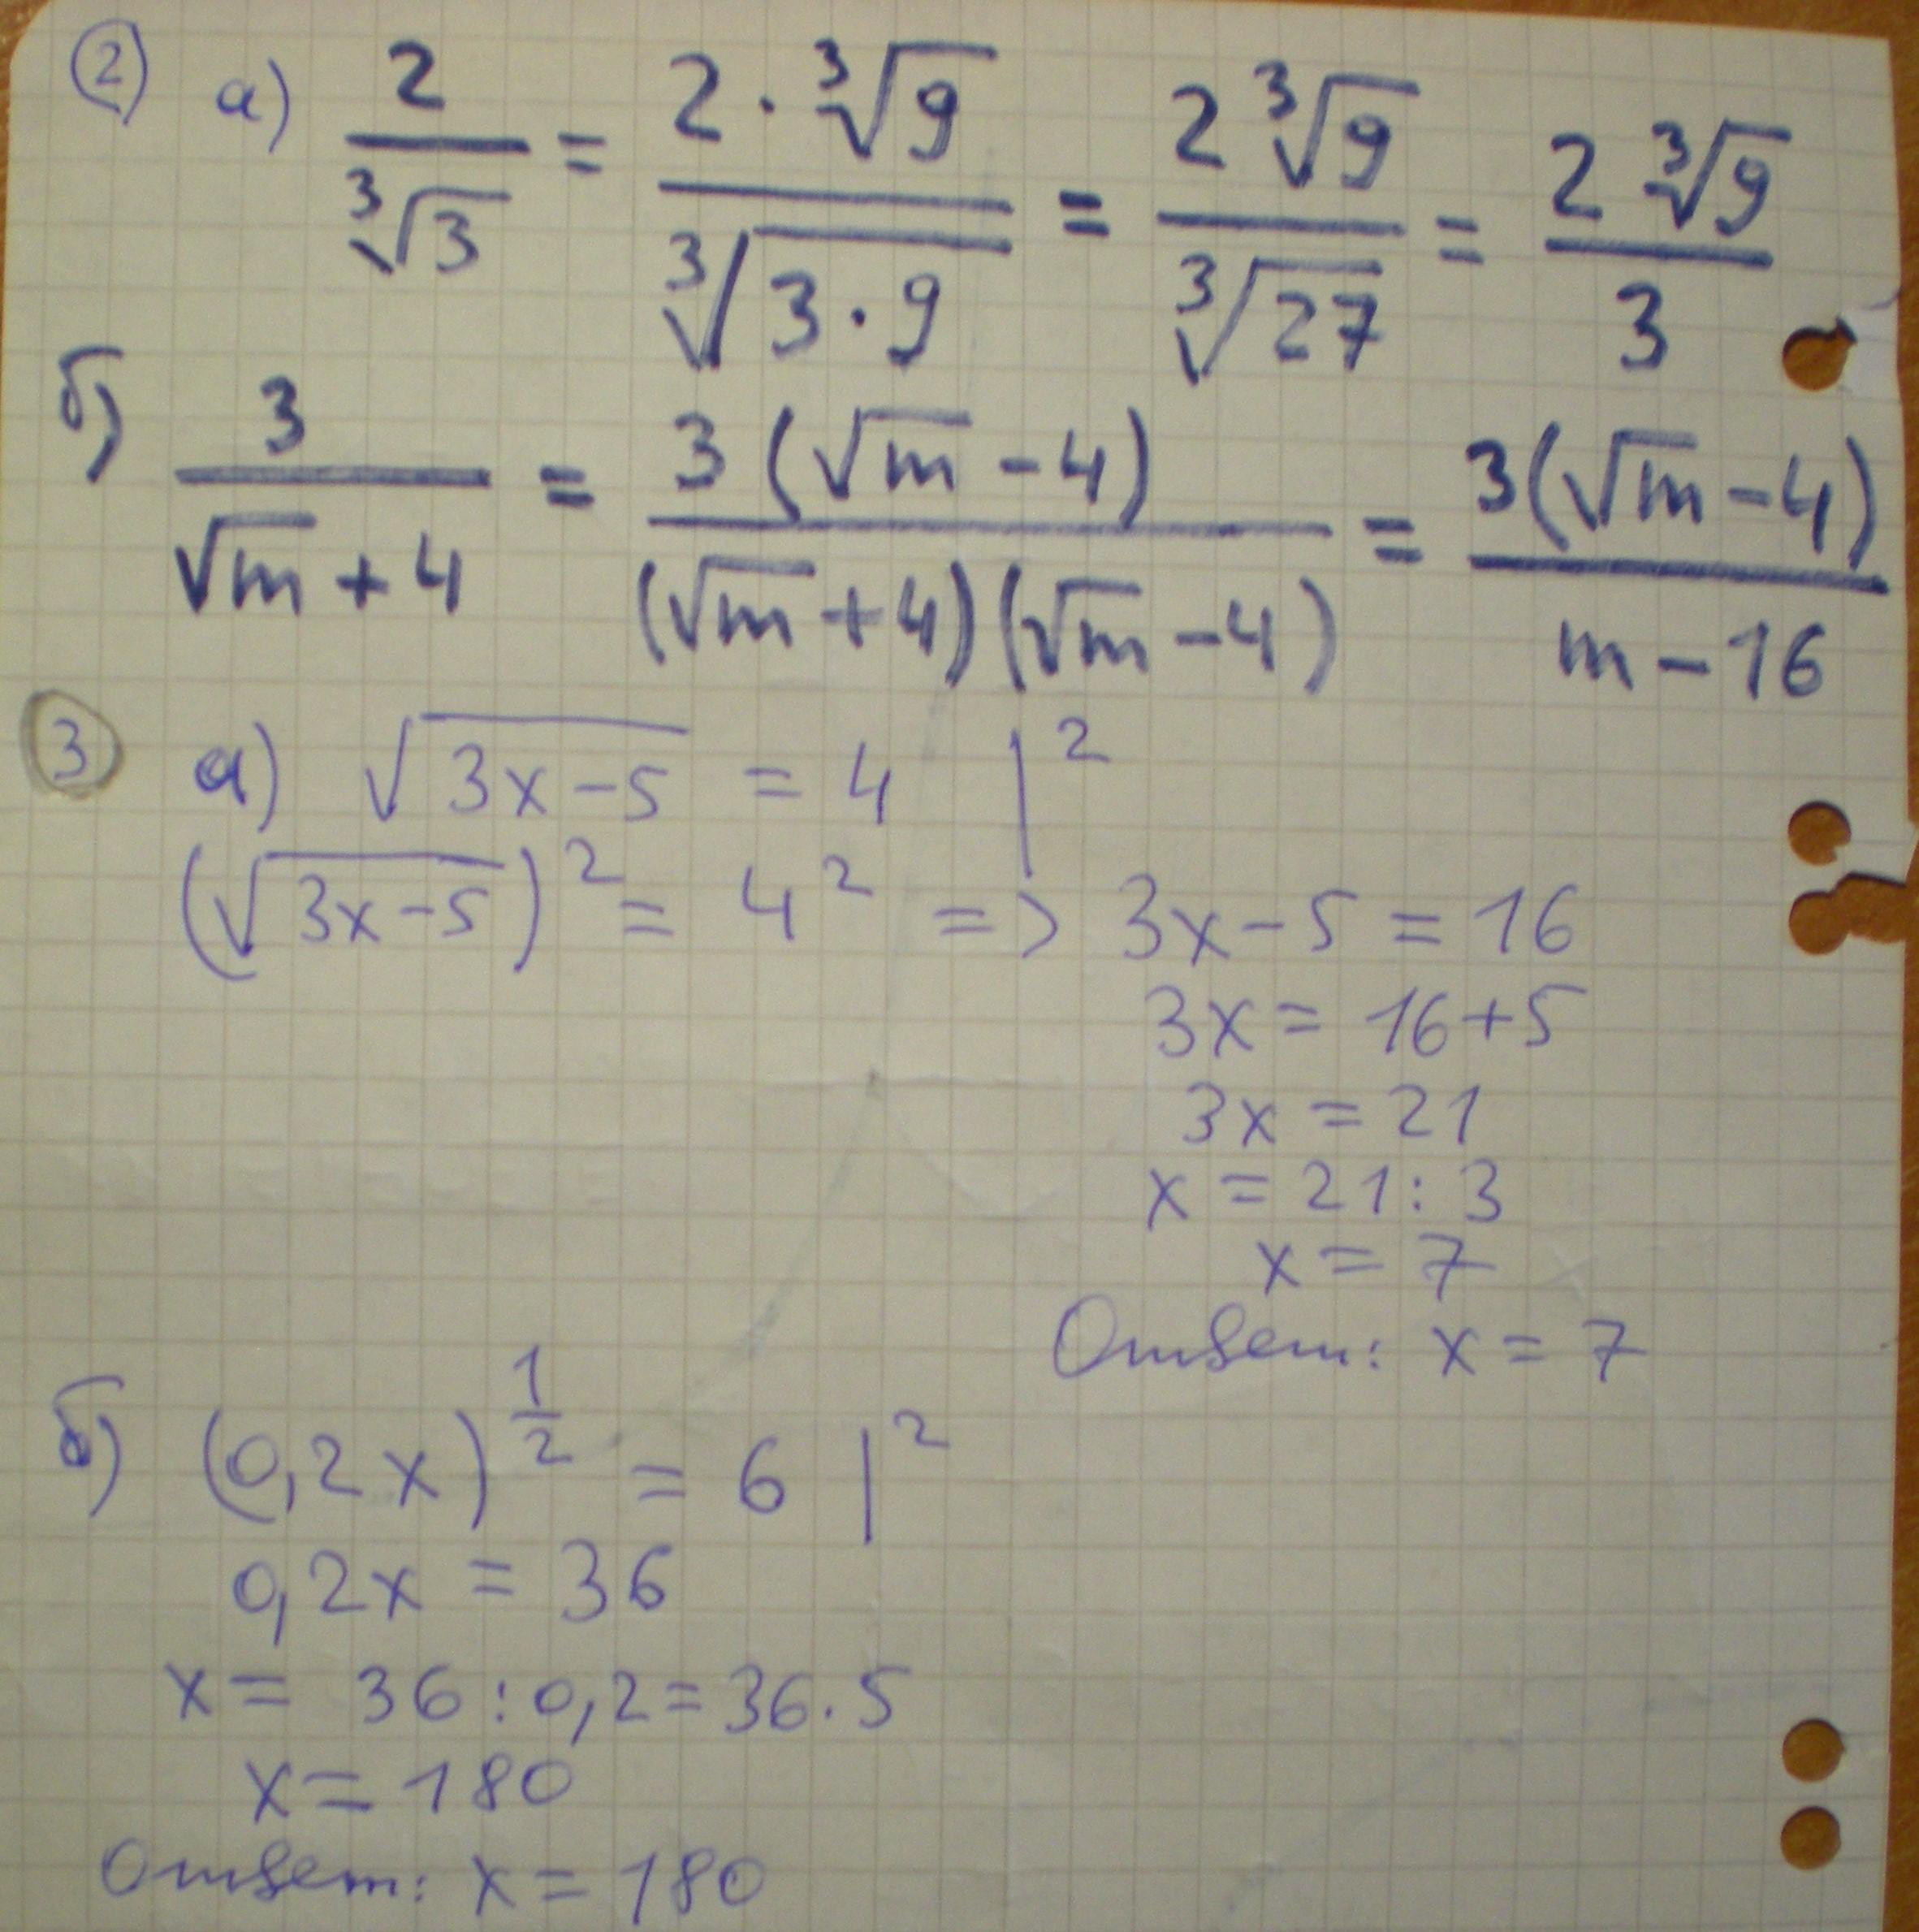 ② а) 2/∛3 = 2·∛9/∛(3·9) = 2∛9/∛27 = 2∛9/3
б) 3/(√m + 4) = 3(√m - 4)/((√m + 4)(√m - 4)) = 3(√m - 4)/(m - 16)
③ а) √(3x-5) = 4 |²
(√(3x-5))² = 4² => 3x-5 = 16
3x = 16+5
3x = 21
x = 21:3
x = 7
Ответ: x = 7
б) (0,2x)^(1/2) = 6 |²
0,2x = 36
x = 36:0,2=36·5
x = 180
Ответ: x = 180